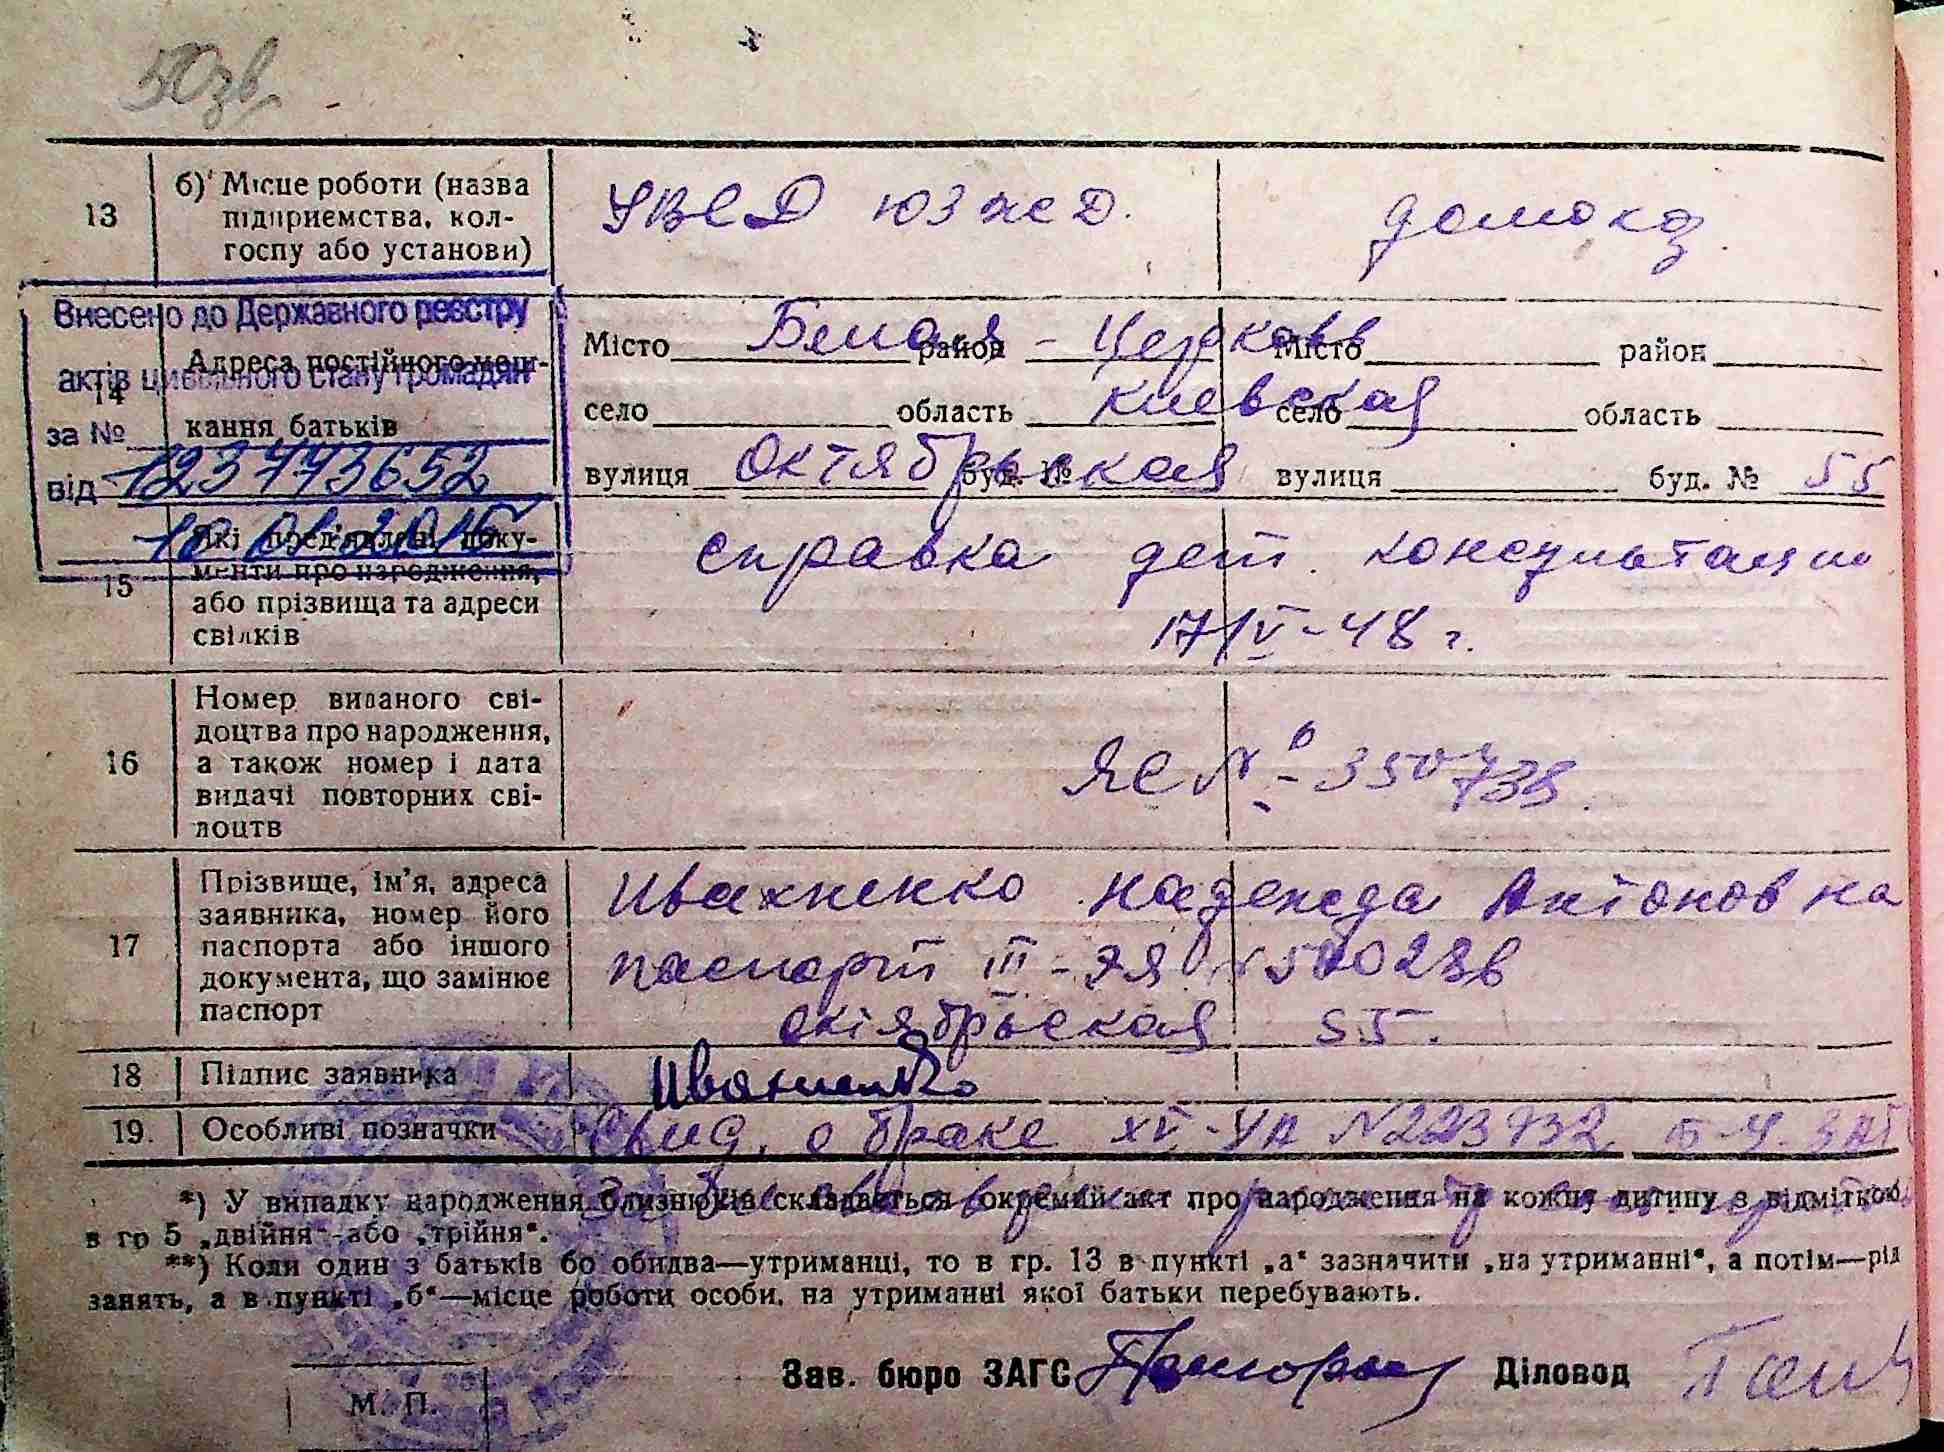 50зв.
13
б) Місце роботи (назва
підприємства, кол-
госпу або установи)
УВСД ЮЗЖД.
домохоз.
Внесено до Державного реєстру
актів цивільного стану громадян
за №
123773652
від
14
Адреса постійного меш-
кання батьків
Місто Белая - Церковь район
село область Киевская
вулиця Октябрьская буд. №
Місто район
село область
вулиця буд. № 55
15
Які пред'явлені доку-
менти про народження,
або прізвища та адреси
свідків
справка дет. консультации
17/V-48 г.
16
Номер виданого сві-
доцтва про народження,
а також номер і дата
видачі повторних сві-
доцтв
ЯС №
17
Прізвище, ім'я, адреса
заявника, номер його
паспорта або іншого
документа, що замінює
паспорт
Ивахненко Надежда Антоновна
паспорт III-ЯЯ
октябрьская 55.
18
Підпис заявника
Ивахненко
19.
Особливі позначки
Свид. о браке XV-УА N223732 Б-Ц. ЗАГС
*) У випадку народження близнюків складається окремий акт про народження на кожну дитину з відміткою
в гр 5 „двійня“ або „трійня“.
**) Коли один з батьків бо обидва—утриманці, то в гр. 13 в пункті „а“ зазначити „на утриманні“, а потім—рід
занять, а в пункті „б“—місце роботи особи, на утриманні якої батьки перебувають.
Зав. бюро ЗАГС
Діловод
М. П.